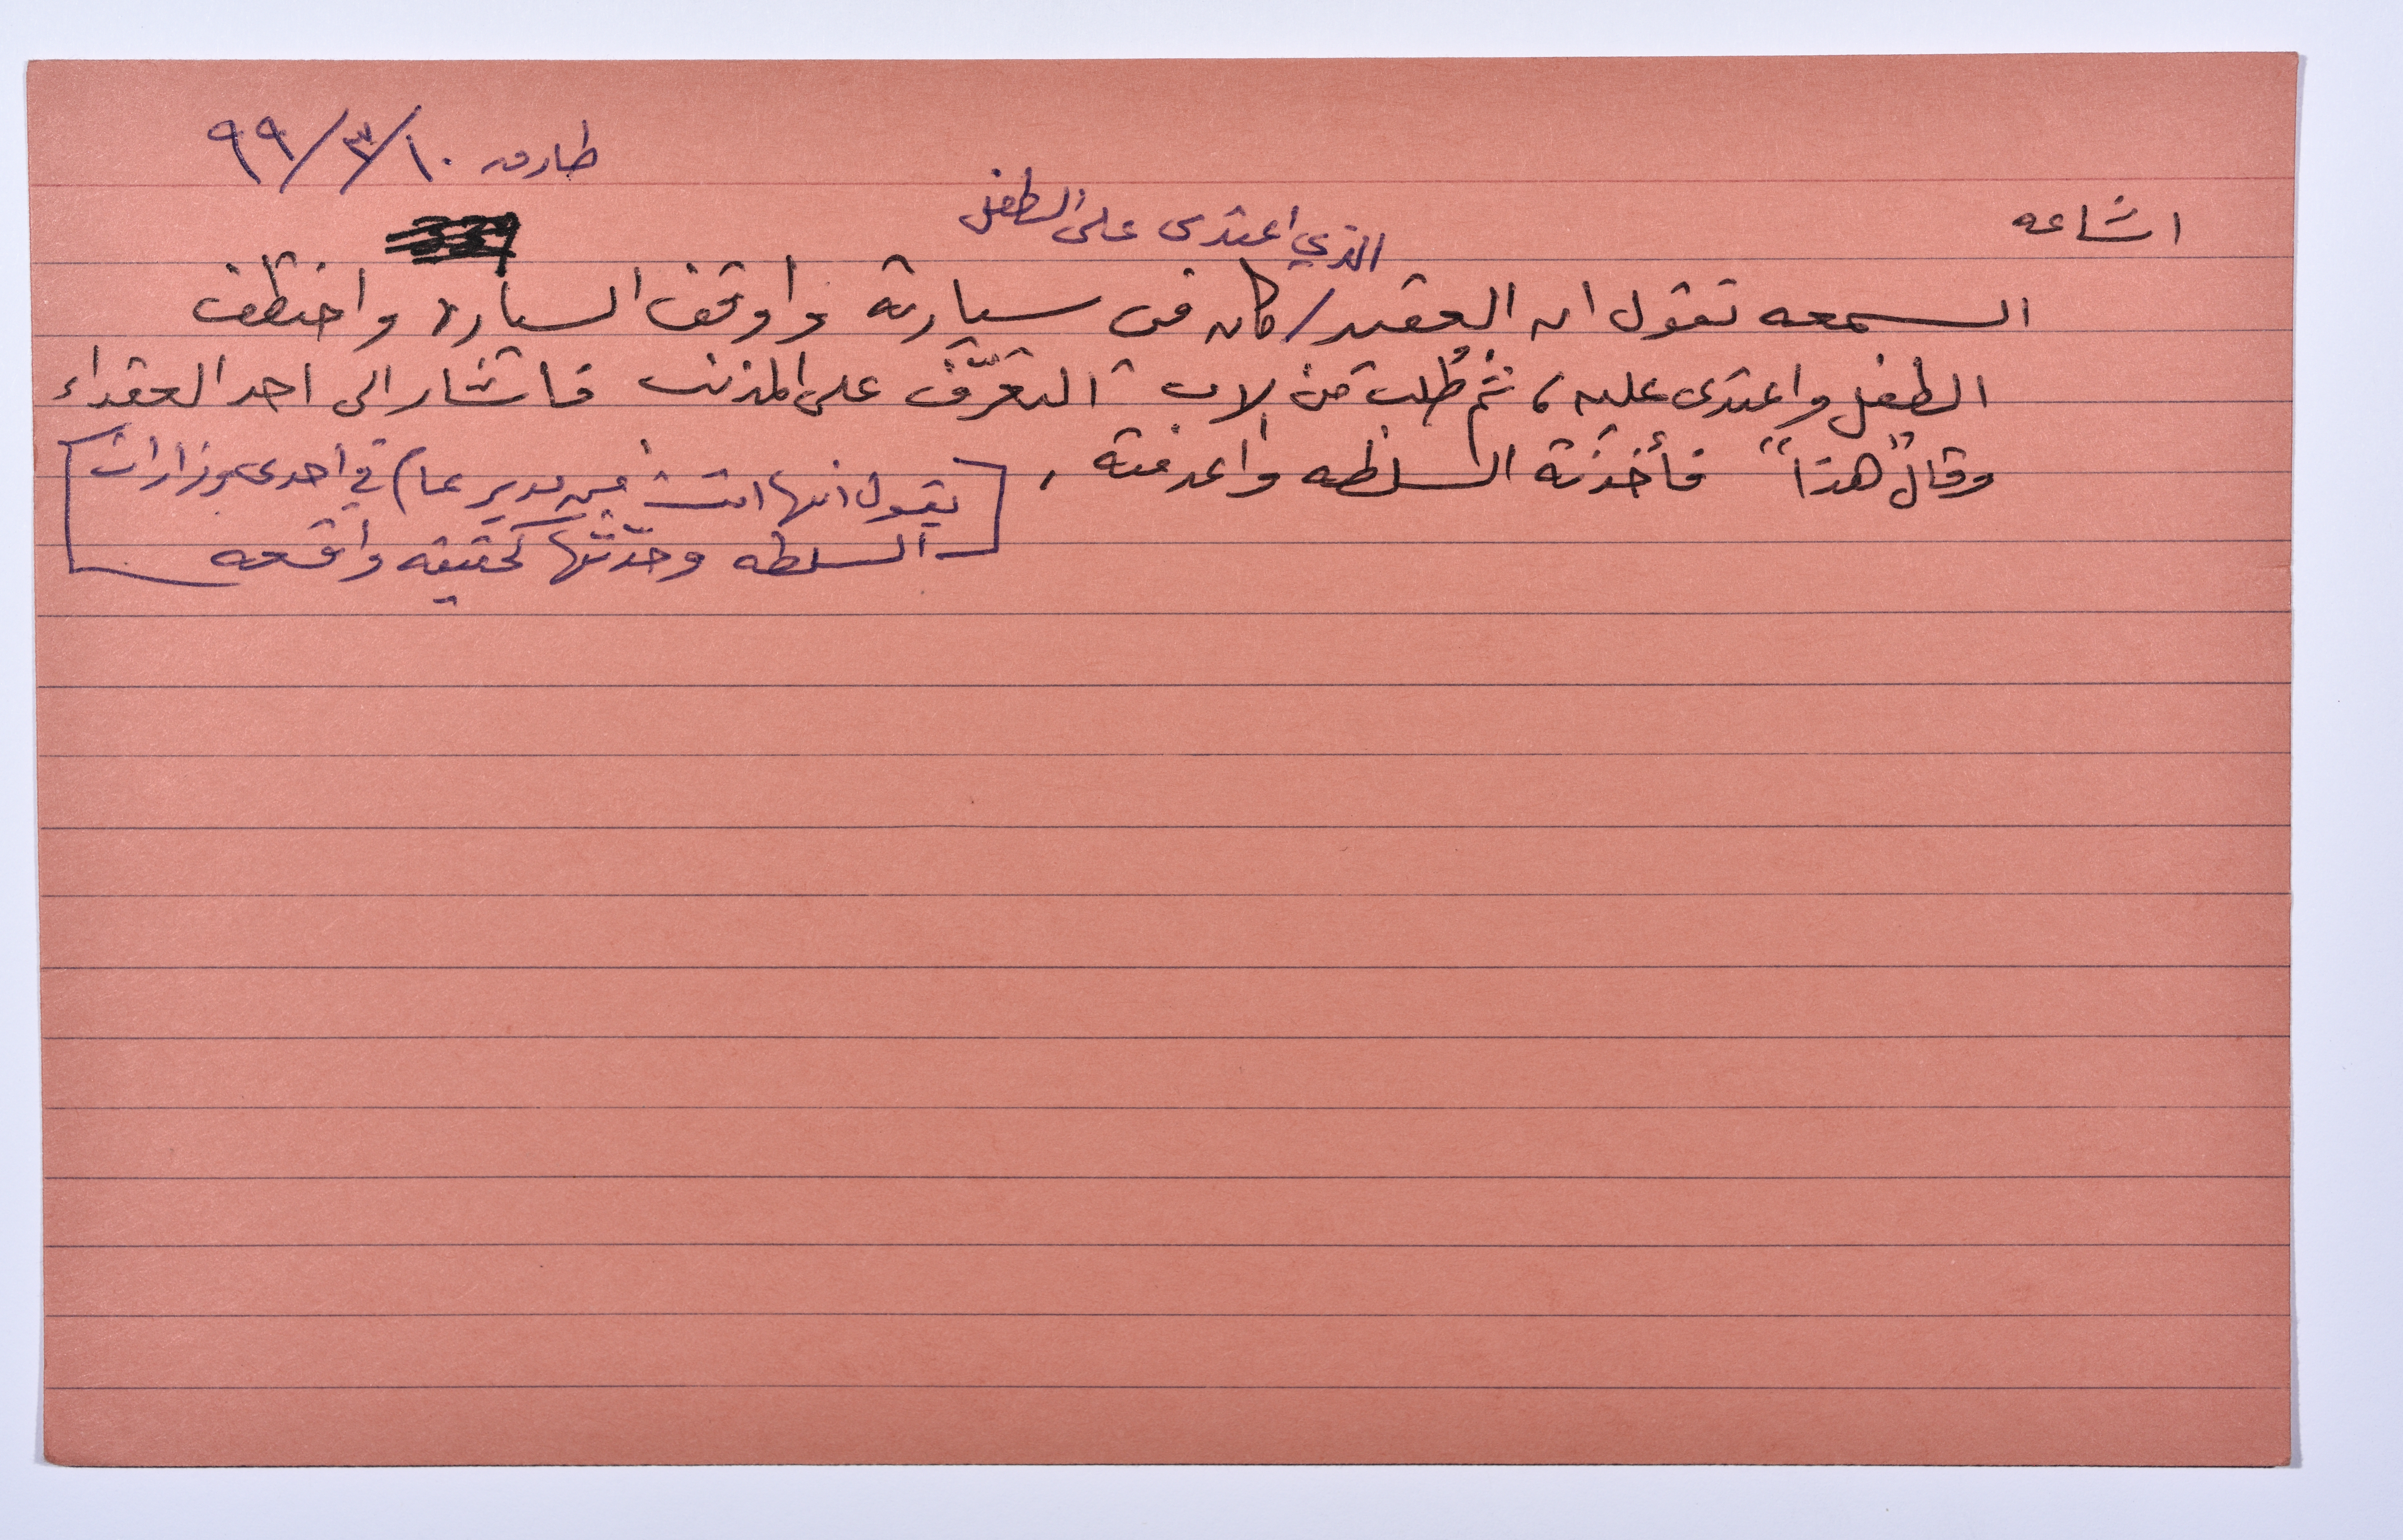 طارق ١٠/٣/٩٩
اشاعه
الذي اعتدى على الطفل
السمعه تقول ان العقيد / كان في سيارته واوقف السياره واختطف
الطفل واعتدى عليه، ثم طُلب من الاب التعرّف على المذنب فاشار الى احد العقداء
وقال "هذا" فأخذته السلطه واعدمته،
[يقول انها اتت من مدير عام في احدى وزارات
السلطه وحدّثها كحقيقه واقعه]